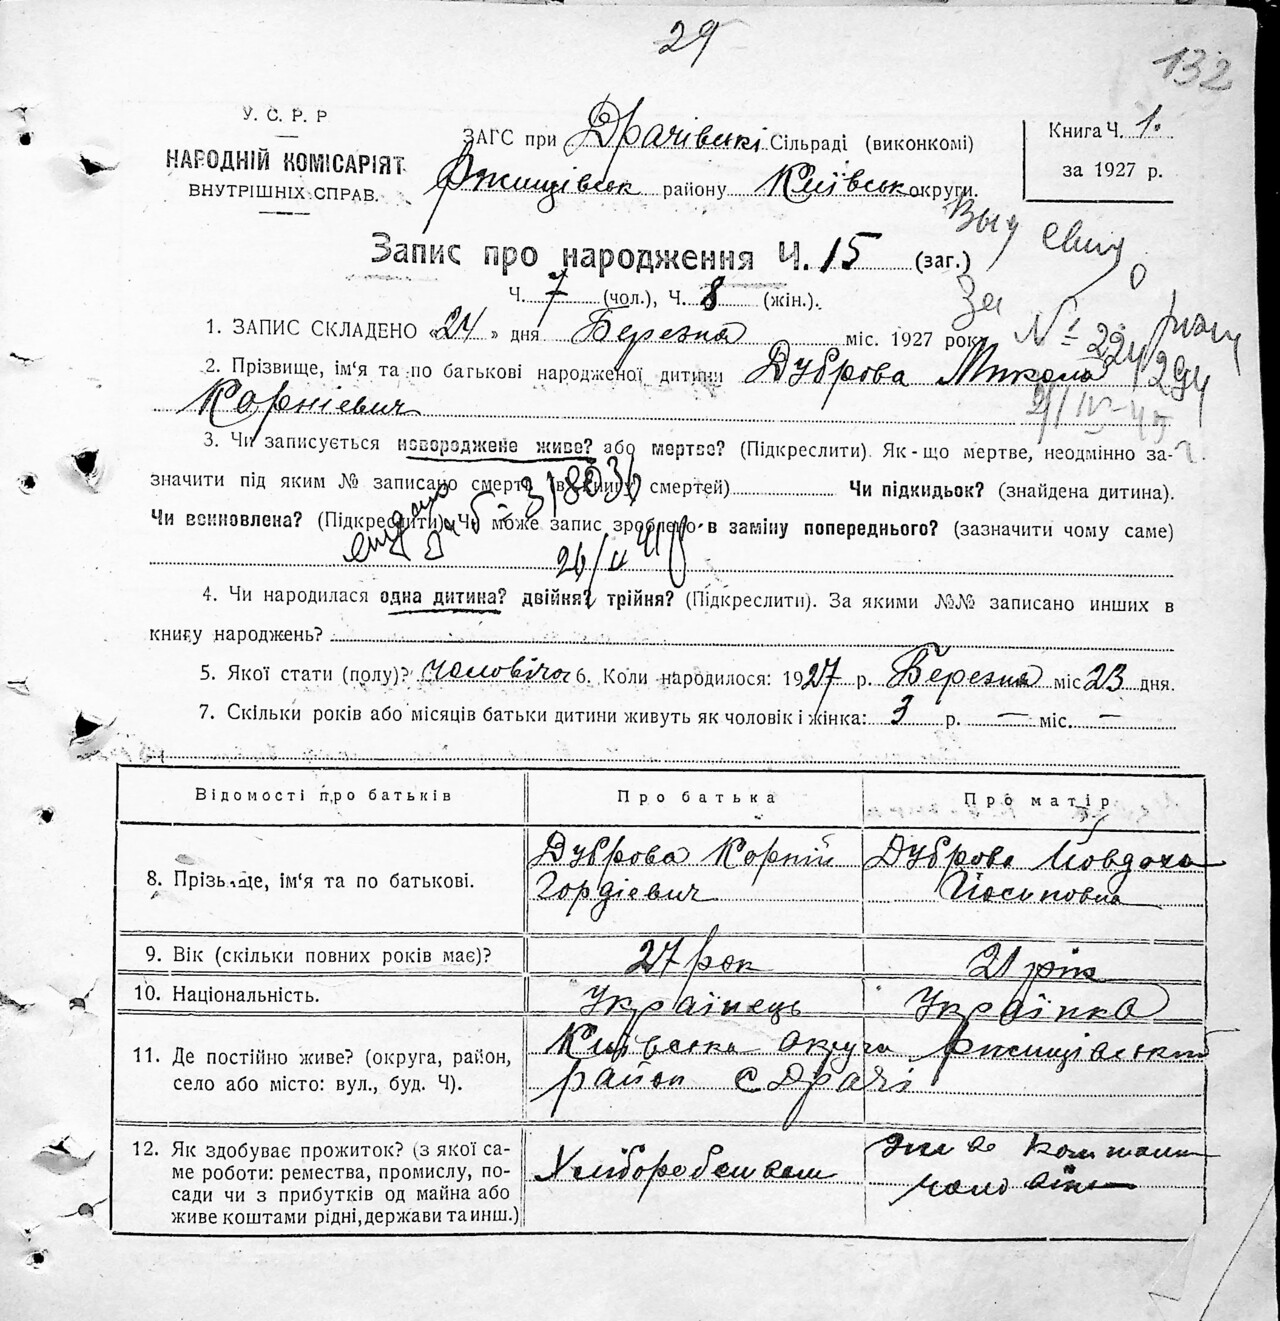 29
132
У. С. Р. Р
НАРОДНІЙ КОМІСАРІЯТ
ВНУТРІШНІХ СПРАВ.
ЗАГС при Драчівські Сільраді (виконкомі)
Ржищівськ району Київськ округи.
Книга Ч. 1.
за 1927 р.
Запис про народження Ч. 15 (заг.)
Ч. 7 (чол.), Ч. 8 (жін.).
1. ЗАПИС СКЛАДЕНО «24» дня Березня міс. 1927 року
2. Прізвище, ім'я та по батькові народженої дитини Дуброва Микола
Корніевич
3. Чи записується новороджене живе? або мертве? (Підкреслити). Як-що мертве, неодмінно за-
значити під яким № записано смерть (в книгу смертей) Чи підкидьок? (знайдена дитина).
Чи всиновлена? (Підкреслити) Чи може запис зроблено в заміну попереднього? (зазначити чому саме)
4. Чи народилася одна дитина? двійня? трійня? (Підкреслити). За якими №№ записано инших в
книгу народжень?
5. Якої стати (полу)? чоловічог 6. Коли народилося: 1927 р. Березня міс 23 дня.
7. Скільки років або місяців батьки дитини живуть як чоловік і жінка: 3 р. — міс. —
Відомості про батьків Про батька Про матір
8. Прізьвище, ім'я та по батькові.
Дуброва Корній
Гордіевич
Дуброва Йовдоха
Йосиповна
9. Вік (скільки повних років має)? 27 рок 21 рік
10. Національність. Українець Українка
11. Де постійно живе? (округа, район,
село або місто: вул., буд. Ч).
Київська округа Ржищівський
район с Драчі
12. Як здобуває прожиток? (з якої са-
ме роботи: ремества, промислу, по-
сади чи з прибутків од майна або
живе коштами рідні, держави та инш.)
Хліборобством
живе коштами
чоловіка